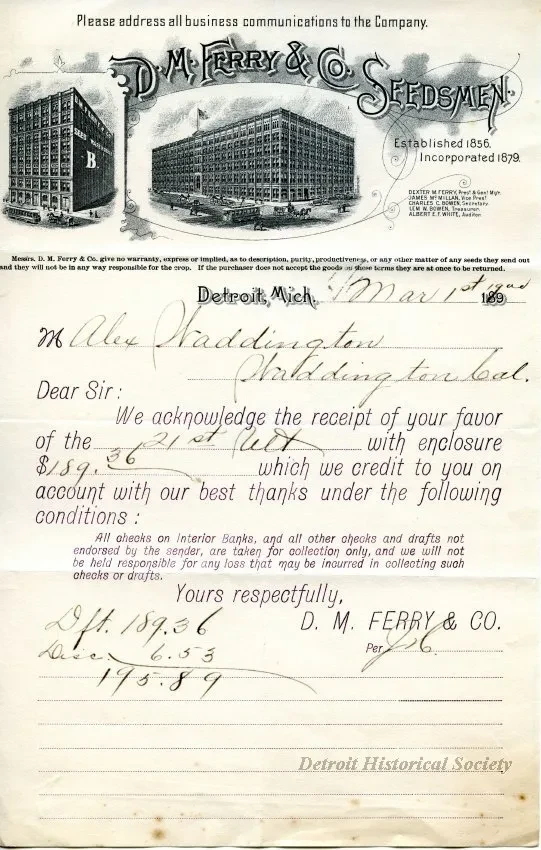 Please address all business communications to the Company.
D. M. FERRY & CO. SEEDSMEN.
B.
Established 1856.
Incorporated 1879.
DEXTER M. FERRY, Pres't & Gen'l Mgr.
JAMES McMILLAN, Vice Pres't
CHARLES C. BOWEN, Secretary
LEM W. BOWEN, Treasurer
ALBERT E. F. WHITE, Auditor
Messrs. D. M. Ferry & Co. give no warranty, express or implied, as to description, purity, productiveness, or any other matter of any seeds they send out
and they will not be in any way responsible for the crop. If the purchaser does not accept the goods on these terms they are at once to be returned.
Detroit, Mich. Mar 1st 1900 189
M Alex Waddington
Waddington Cal.
Dear Sir:
We acknowledge the receipt of your favor
of the 21st Ult with enclosure
$189.36 which we credit to you on
account with our best thanks under the following
conditions:
All checks on Interior Banks, and all other checks and drafts not
endorsed by the sender, are taken for collection only, and we will not
be held responsible for any loss that may be incurred in collecting such
checks or drafts.
Yours respectfully,
D. M. FERRY & CO.
Per
Dft. 189.36
Disc. 6.53
195.89
Detroit Historical Society